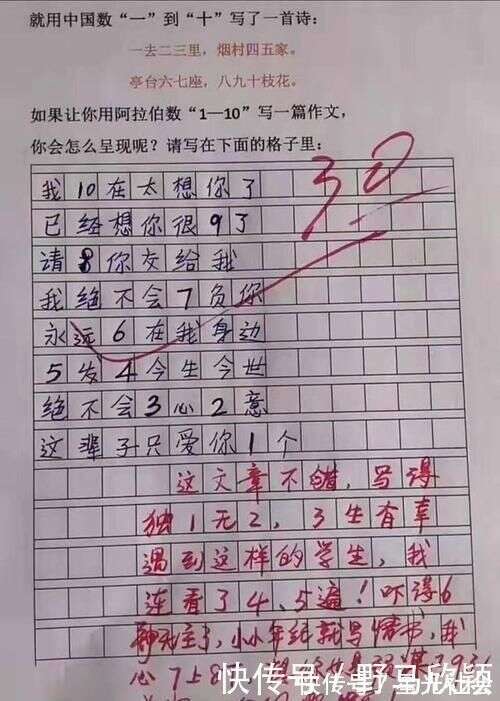 就用中国数“一”到“十”写了一首诗:
一去二三里,烟村四五家。
亭台六七座,八九十枝花。
如果让你用阿拉伯数“1—10”写一篇作文,
你会怎么呈现呢?请写在下面的格子里:
30
我10在太想你了
已经想你很9了
请8你交给我
我绝不会7负你
永远6在我身边
5发4今生今世
绝不会3心2意
这辈子只爱你1个
这文章不错,写得
独1无2,3生有幸
遇到这样的学生,我
连看了4、5遍!吓得6
神无主了,小小年纪就写情书,我
心7上8
快传号/野马欣颜
快传号